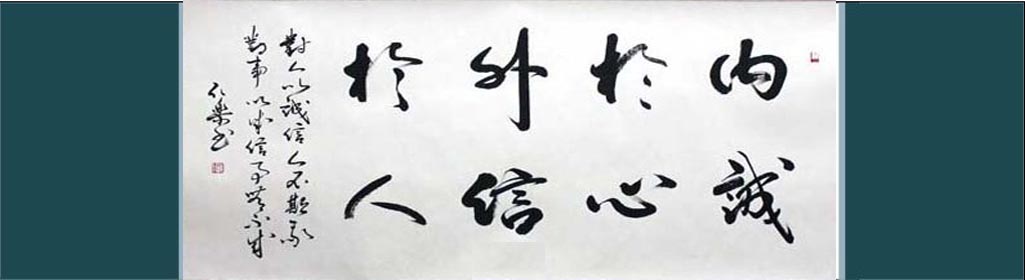 内誠
於心
外信
於人
對人以誠信人不欺我
對事以誠信事無不成
仁樂书